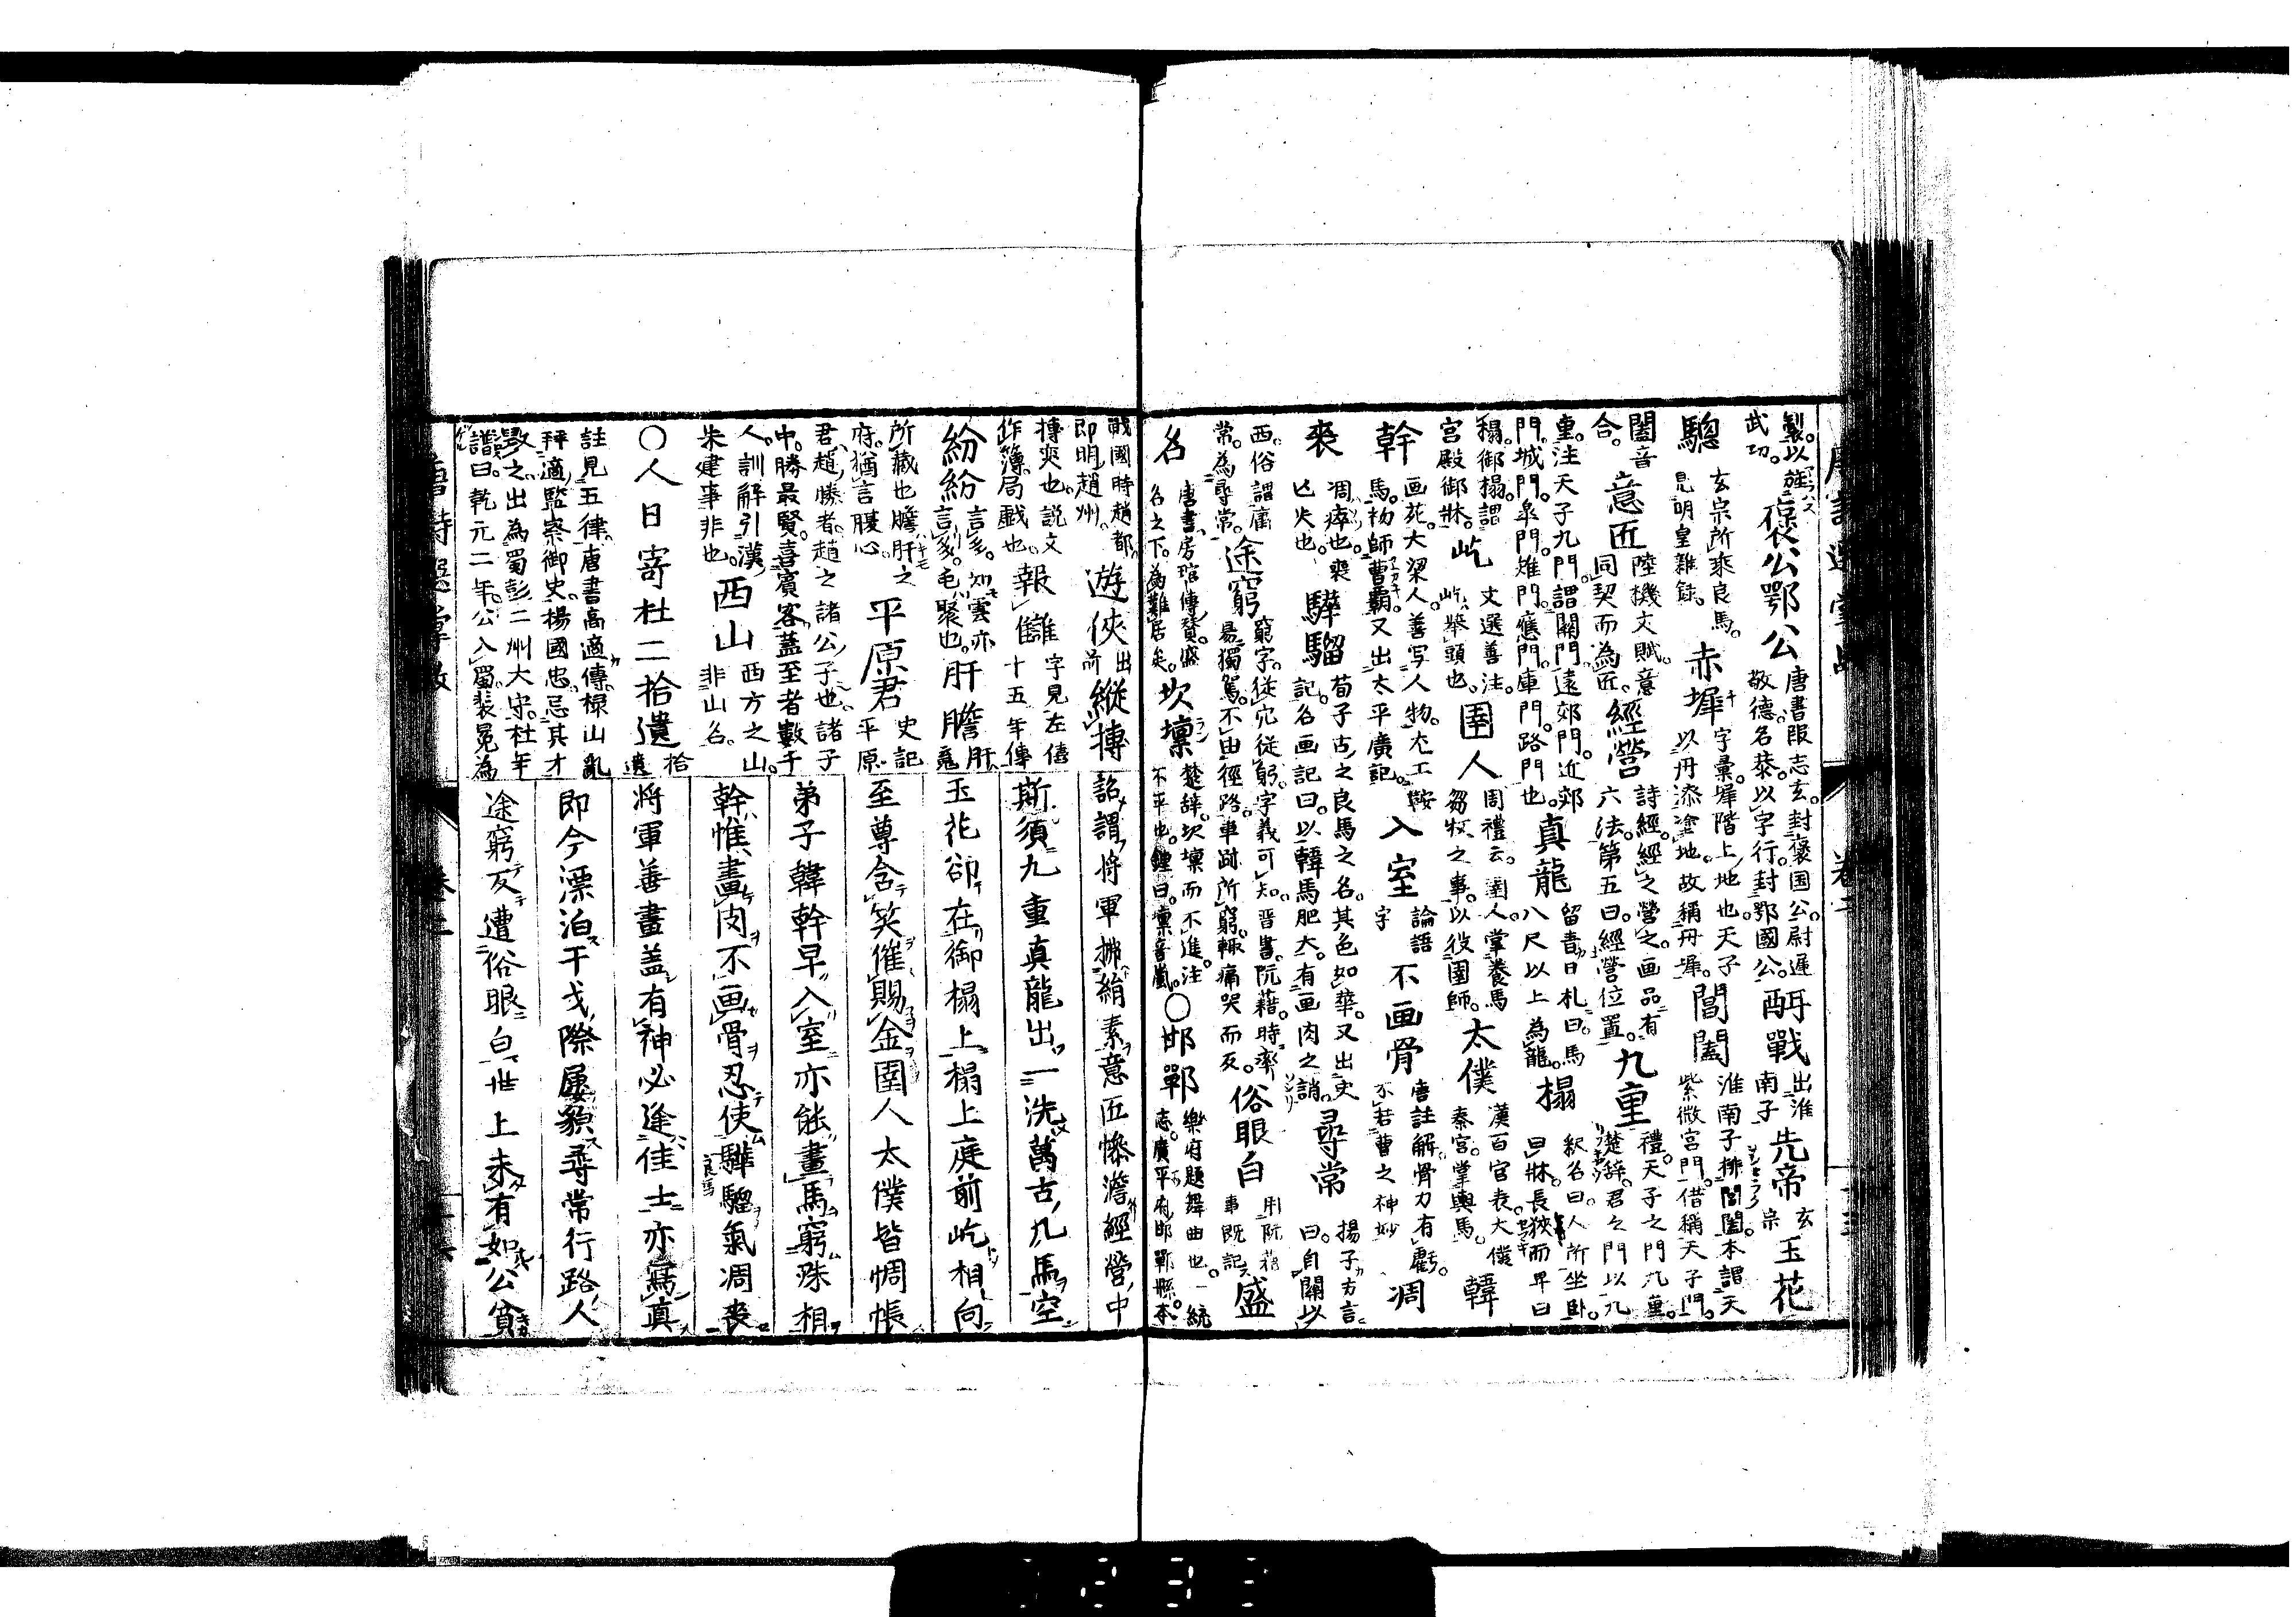 製。以旌武功。褒公鄂公唐書段志玄。封褒国公。尉遲敬德。名恭。以字行。封鄂國公。酣戰出淮南子先帝玄宗玉花
驄玄宗所乘良馬。見明皇雜録。赤墀字彙。墀階上地也。天子以丹漆塗地。故稱丹墀。閶闔淮南子排閶闔。本謂天紫微宮門。借稱天子門。
闔音合。意匠陸機文賦。意同契而為匠。經營詩經。經之營之。画品有六法。第五曰。經營位置。九重禮。天子之門九重。楚辞。君之門以九
重。注天子九門。謂關門。遠郊門。近郊門。城門。皐門。雉門。應門。庫門。路門也。真龍留青日札曰。馬八尺以上為龍。榻釈名曰。人所坐卧。曰牀。長狹而卑曰
榻。御榻。謂宮殿御牀。屹文選善注。屹擧頭也。圉人周禮云。圉人。掌養馬芻牧之事。以役圉師。太僕漢百官表。大僕秦宮。掌輿馬。韓
幹画苑。大梁人。善写人物。尤工鞍馬。初師曹霸。又出太平廣記。入室論語字不画骨唐註解。骨力有虧。不若曹之神妙凋
喪凋。瘁也。喪亡失也。驊騮荀子。古之良馬之名。其色如華。又出史記。名画記曰。以韓馬肥大。有画肉之誚。尋常揚子方言曰。自關以
西。俗謂庸常。為尋常。途窮窮字。從穴從躬。字義可知。晋書。阮藉。時率易獨駕。不由徑路。車跡所窮。輒痛哭而反。俗眼白用阮藉事既記盛
名唐書。房琯傳贊。盛名之下。為難居矣。坎壈楚辞。坎壈而不進。注不平也。鍾曰。壈音凜。〇邯鄲樂府題。舞曲也。一統志。廣平府邯鄲縣。本
戦國時趙都。即明趙州。遊俠出前縱博
博奕也。説文作簙。局戯也。報讎字見左僖十五年傳
紛紛言多。如雲亦言多。毛聚也。肝膽肝魂
所藏也膽肝之府。猶言腹心。平原君史記平原
君。趙勝者。趙之諸公子也。諸子中。勝最賢。喜賓客。蓋至者數千
人。訓解引漢朱建事非也。西山西方之山。非山名。
〇人日寄杜二拾遺拾遺
註見五律。唐書高適傳。禄山亂拜適監察御史。楊國忠。忌其才
毀之。出為蜀彭二州大守。杜年譜曰。乾元二年。公入蜀。裴冕為
詔謂將軍拂絹素意匠慘澹經營中
斯須九重真龍出一洗萬古凡馬空
玉花卻在御榻上榻上庭前屹相向
至尊含笑催賜金圉人太僕皆惆悵
弟子韓幹早入室亦能畫馬窮殊相
幹惟畫肉不画骨忍使驊騮氣凋喪
將軍善畫盖有神必逢佳士亦寫真
即今漂泊干戈際屢貌尋常行路人
途窮反遭俗眼白世上未有如公貧